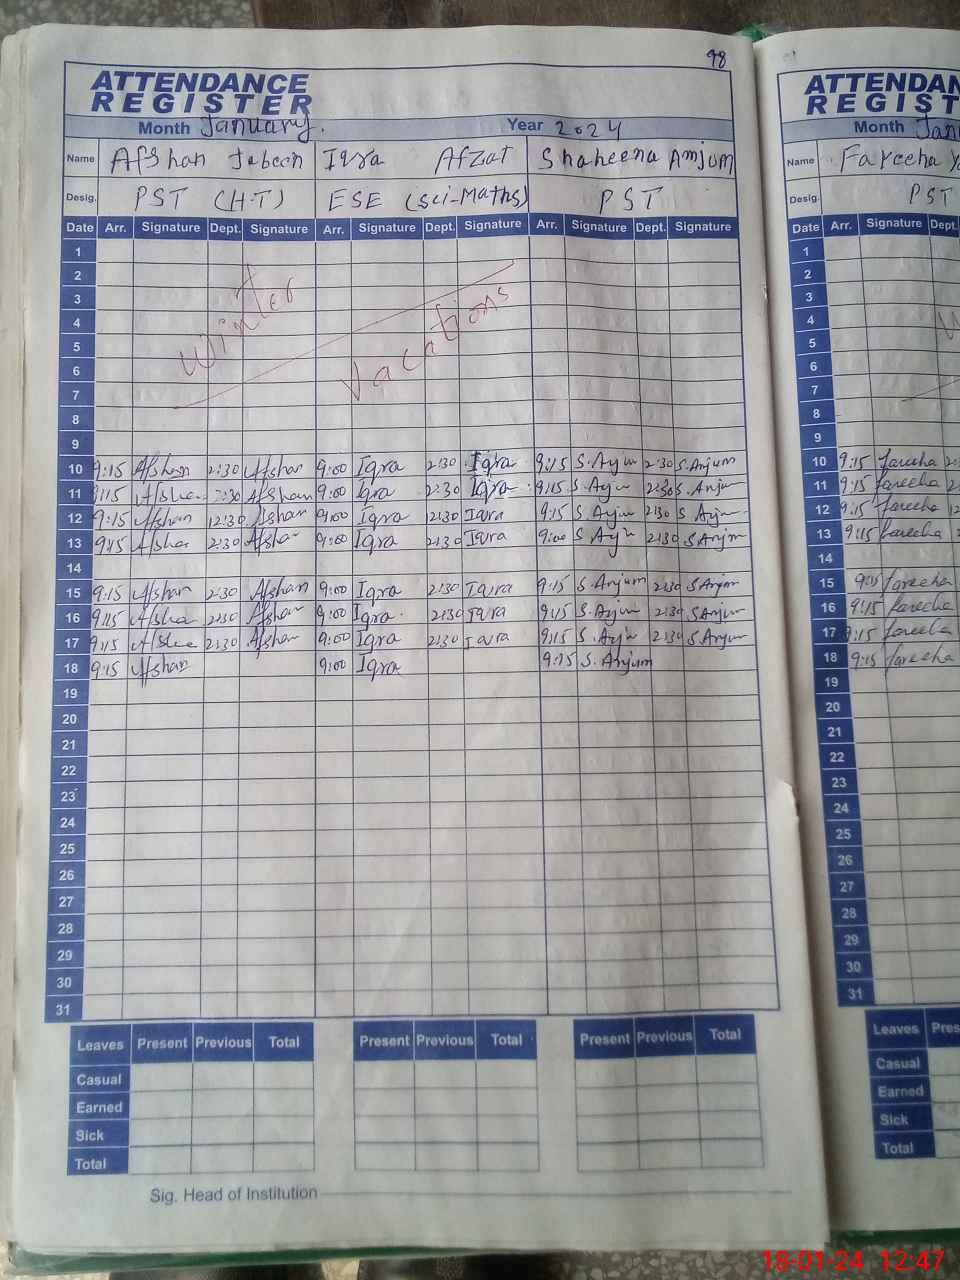 98
ATTENDANCE
REGISTER
Month January. Year 2024
Name Afshan Jabeen Iqra Afzal Shaheena Amjum
Desig. PST (H.T) ESE (Sci-Maths) PST
Date Arr. Signature Dept. Signature Arr. Signature Dept. Signature Arr. Signature Dept. Signature
1
2
3
4
5
6
7
8
9
Winter
Vacations
10 9:15 Afshan 2:30 Afshan 9:00 Iqra 2:30 Iqra 9:15 S. Anjum 2:30 S. Anjum
11 9:15 Afshan 2:30 Afshan 9:00 Iqra 2:30 Iqra 9:15 S Anjum 2:30 S. Anjum
12 9:15 Afshan 12:30 Afshan 9:00 Iqra 12:30 Iqra 9:15 S Anjum 12:30 S Anjum
13 9:15 Afshan 2:30 Afshan 9:00 Iqra 2:30 Iqra 9:00 S Anjum 2:30 S Anjum
14
15 9:15 Afshan 2:30 Afshan 9:00 Iqra 2:30 Iqra 9:15 S. Anjum 2:30 S Anjum
16 9:15 Afshan 2:30 Afshan 9:00 Iqra 2:30 Iqra 9:15 S. Anjum 2:30 S. Anjum
17 9:15 Afshan 2:30 Afshan 9:00 Iqra 2:30 Iqra 9:15 S. Anjum 2:30 S Anjum
18 9:15 Afshan 9:00 Iqra 9:15 S. Anjum
19
20
21
22
23
24
25
26
27
28
29
30
31
Leaves Present Previous Total Present Previous Total Present Previous Total
Casual
Earned
Sick
Total
Sig. Head of Institution
ATTENDAN
REGIST
Month Jan
Name Fareeha
Desig. PST
Date Arr. Signature Dept.
1
2
3
4
5
6
7
8
9
10 9:15 fareeha
11 9:15 fareeha
12 9:15 fareeha
13 9:15 fareeha
14
15 9:15 fareeha
16 9:15 fareeha
17 9:15 fareeha
18 9:15 fareeha
19
20
21
22
23
24
25
26
27
28
29
30
31
Leaves Pres
Casual
Earned
Sick
Total
18-01-24 12:47